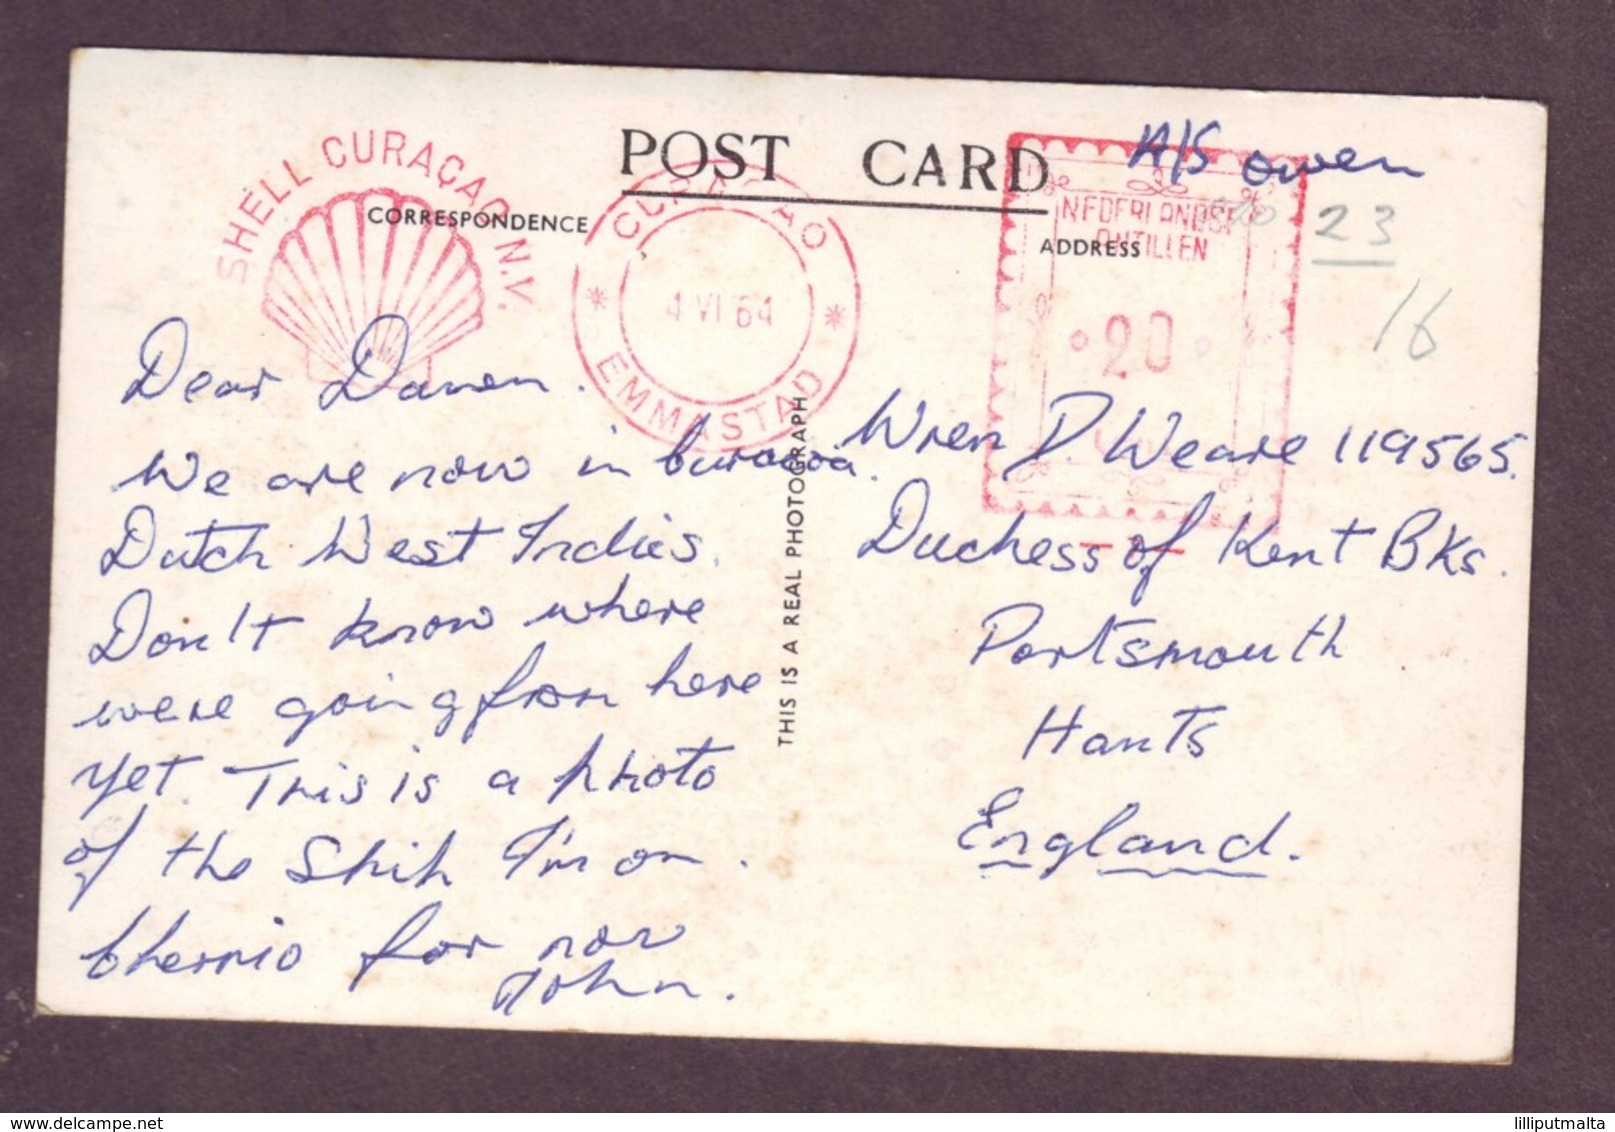 POST CARD
SHELL CURAÇAO N.V.
CORRESPONDENCE
CURAÇAO
4 VI 64
EMMASTAD
NEDERLANDSE
ANTILLEN
20
ADDRESS
A/S Owen
23
16
Dear
We are now in
Dutch West Indies.
Don't know where
were going from here
yet. This is a photo
of the Ship I'm on.
Cherrio for now
John.
THIS IS A REAL PHOTOGRAPH
Wren D. Weare 119565.
Duchess of Kent BKs.
Portsmouth
Hants
England.
lilliputmalta